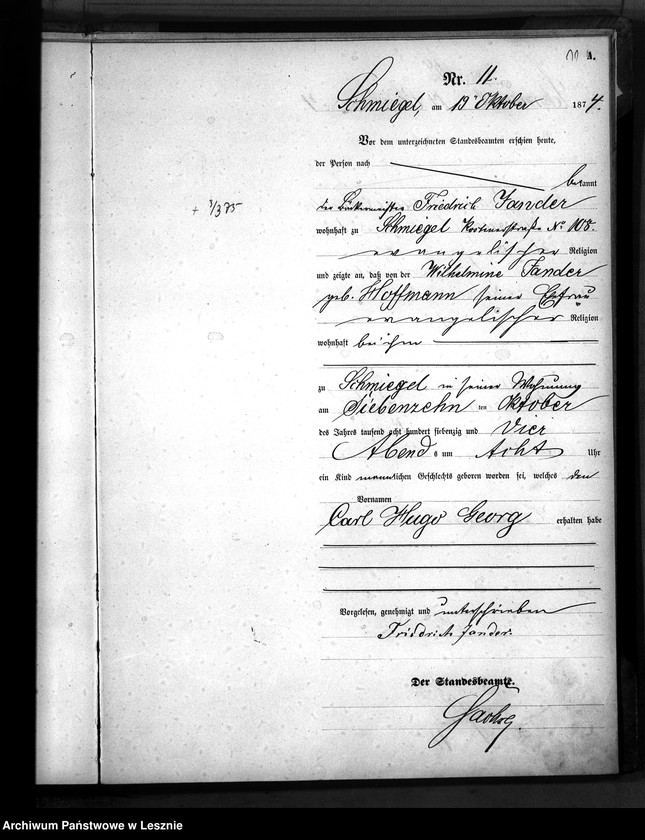 A.
Nr. 11.
Schmiegel, am 19 Oktober 1874.
Vor dem unterzeichneten Standesbeamten erschien heute,
der Person nach
bekannt
der Bäckermeister Friedrich Jander
wohnhaft zu Schmiegel Kostenerstraße No 108.
evangelischer Religion
und zeigte an, daß von der Wilhelmine Jander
geb. Hoffmann seiner Ehefrau
evangelischer Religion
wohnhaft bei ihm
zu Schmiegel in seiner Wohnung
am Siebenzehn ten Oktober
des Jahres tausend acht hundert siebenzig und Vier
Abend s um Acht Uhr
ein Kind männlichen Geschlechts geboren worden sei, welches den
Vornamen
Carl Hugo Georg erhalten habe
+ 3/3 75
Vorgelesen, genehmigt und unterschrieben
Friedrich Jander.
Der Standesbeamte.
Archiwum Państwowe w Lesznie